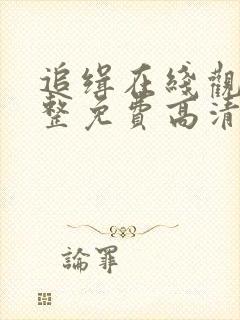 追缉在綫觀
整免費高清
論罪